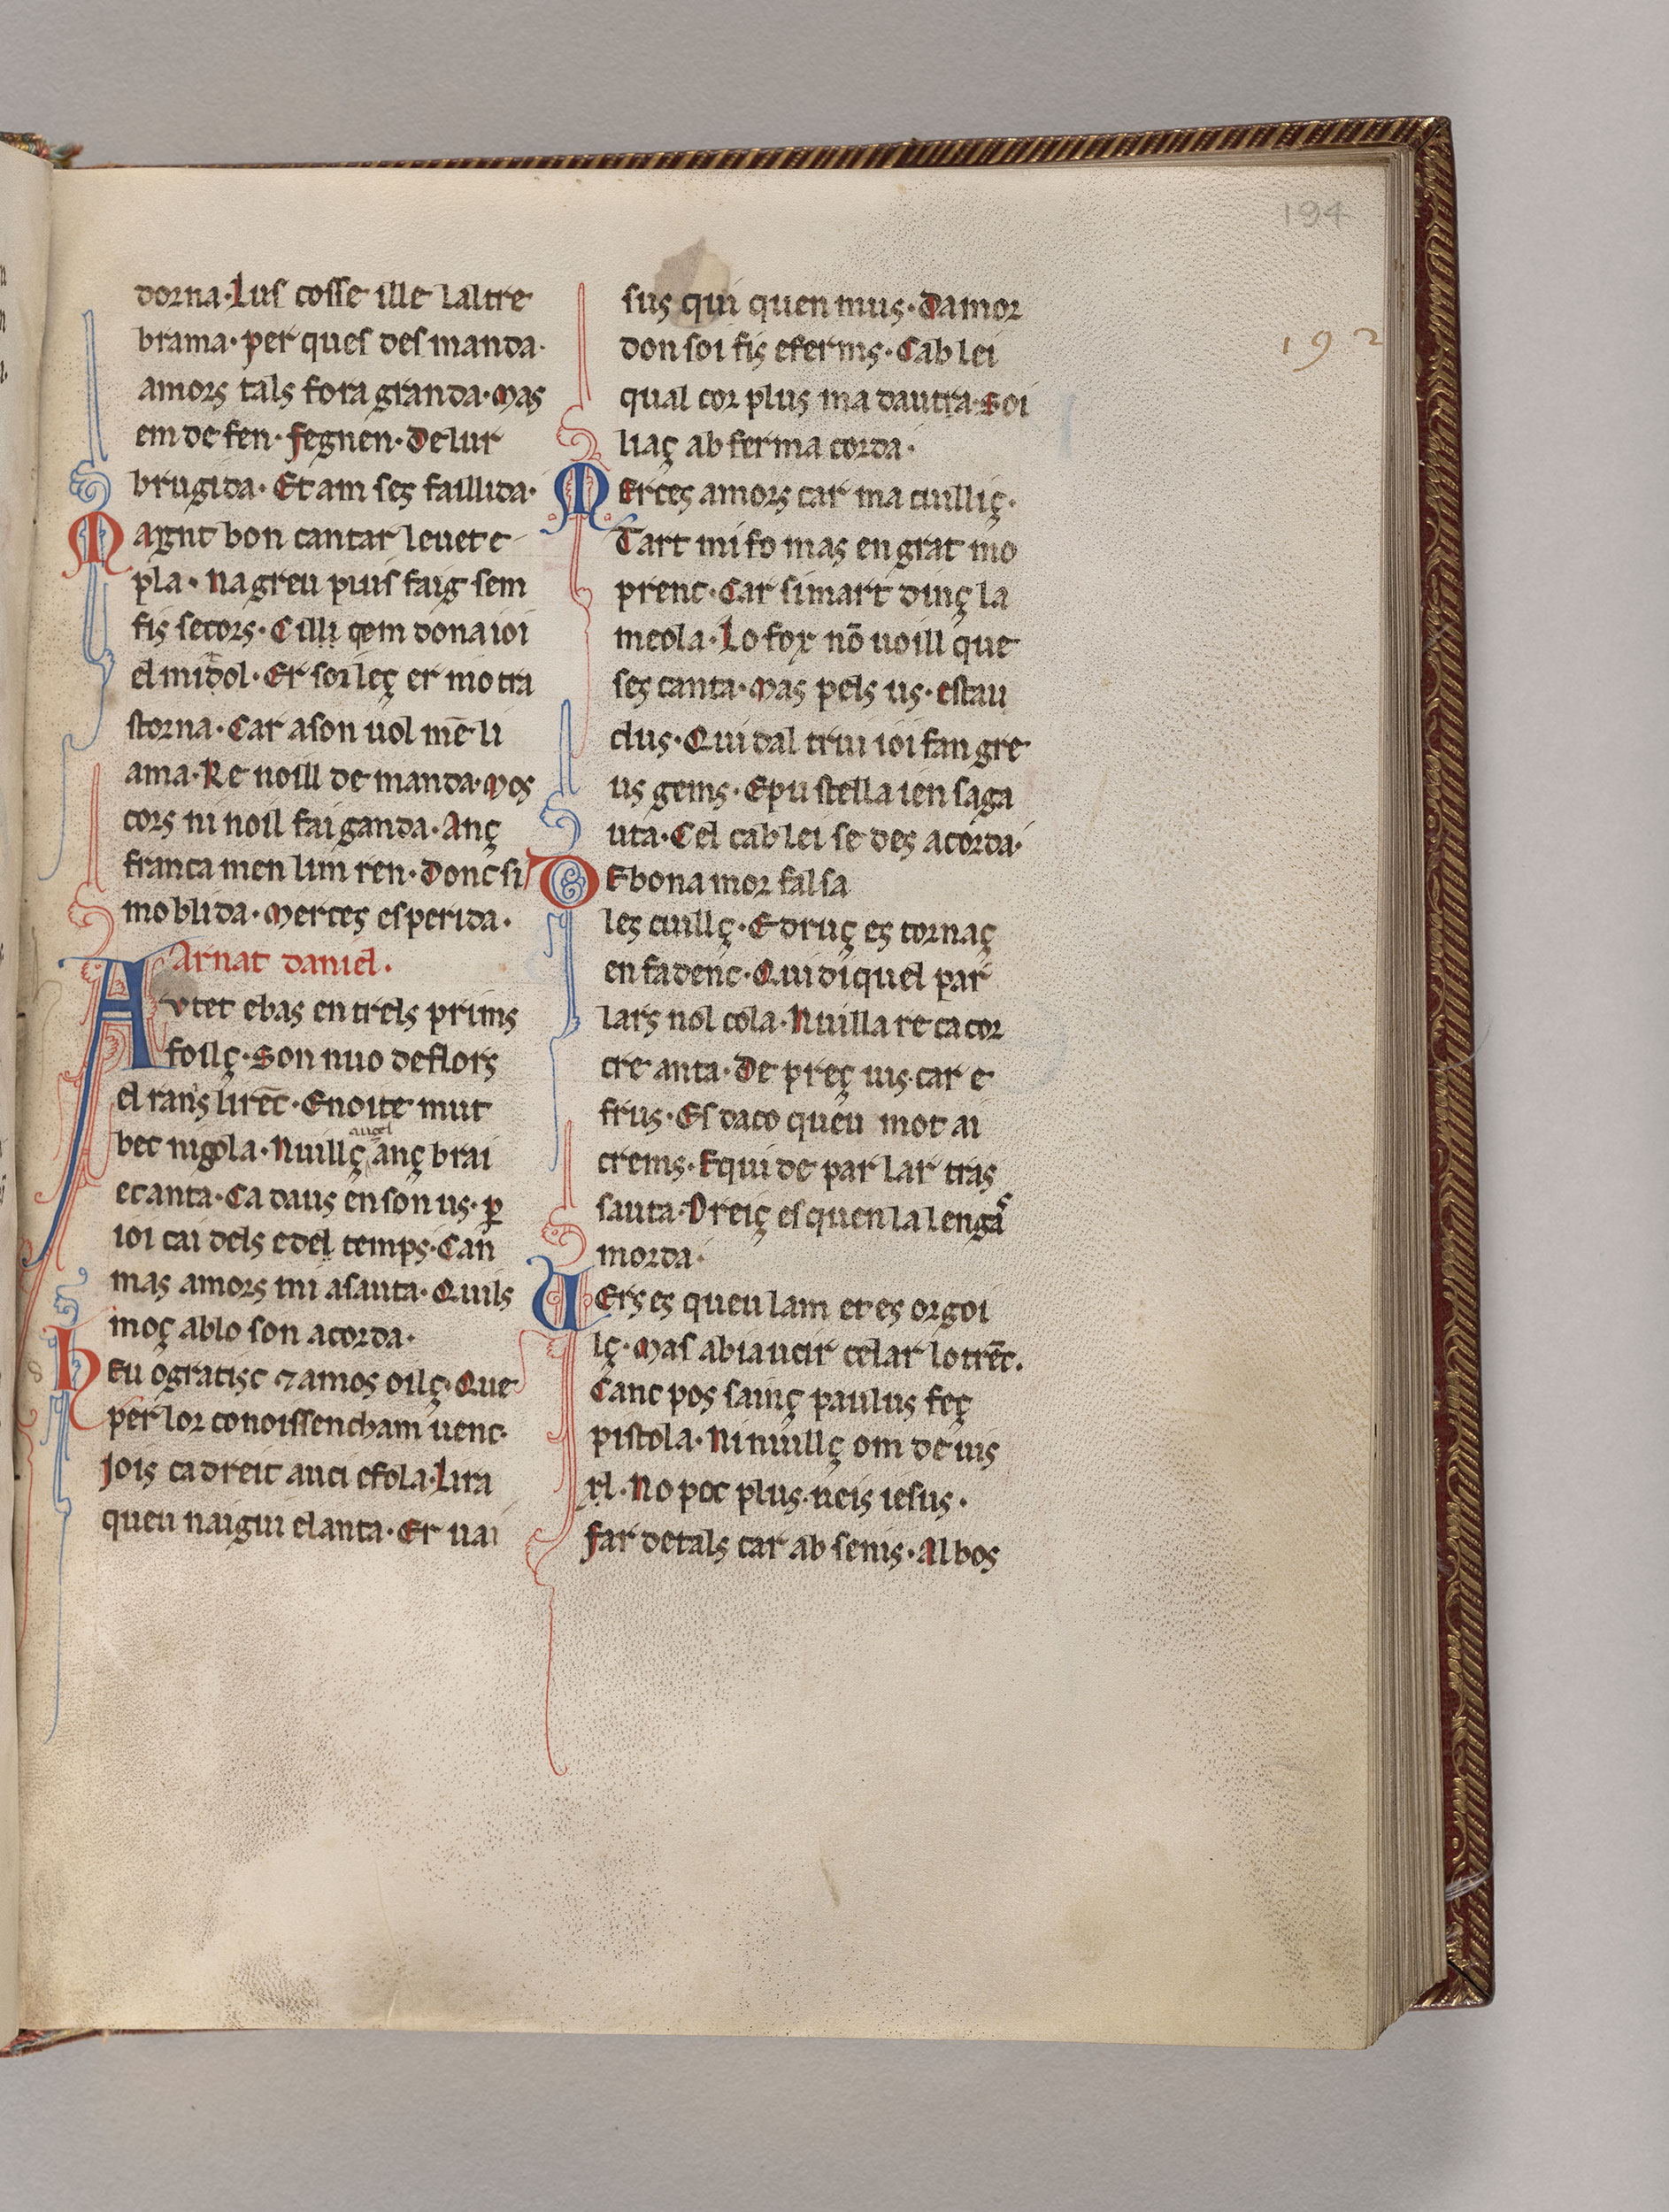 194
192
dorna·Lus cosse ille laltre
brama·per ques des manda·
amors tals fora granda·Mas
em de fen·fegnen·De lur
brugida·Et am seς faillida·
Maignt bon cantar leuet e
pla·Na greu puis faig sem
fis secors·Cilli qem dona ioi
el mi dol·Er soi leç er mo tra
storna·Car ason uol mē li
ama·Re uoill de manda·Mos
cors ni noil fai ganda·Anç
franca men lim ren·Donc si
moblida·Merces es perida·
Arnat daniel·
Autet ebas en trels prims
foilç·Son nuo deflors
el rans lirēc·E noi te mut
bec ni gola·Nuillç auçel anç brai
ecanta·Ca daus en son us·ꝑ
ioi cai dels e del temps·Can
mas amors mi asauta·Quils
moç ablo son acorda·
Heu ogratisc ⁊ amos oilç·Que
per lor conoissencham uenc·
Jois ca dreit auci e fola·Lira
queu naigui elanta·Er uai
sus qui quen mus·Damor
don soi fis e ferms·Cab lei
qual cor plus ma dauira·Soi
liaç ab ferma corda·
Merces amors car ma cuilliç·
Tart mi fo mas en grat mo
prenc·Car simart dinç la
meola·Lo fox nō uoill que
ses canta·Mas pels us·estau
clus·Qui dal trui ioi fan gre
us gems·E pustella ien saga
uta·Cel cab lei se des acorda·
De bon amor falsa
les cuillç·E druç es tornaç
en fadenc·Qui di quel par
lars nol cola·Nuilla re ca cor
cre anta·De preç uis·car e
frus·Es daco queu mot ai
crems·E qui de par lar tras
sauta·Dreiç es quen la lengas
morda·
Vers es queu lam et es orgoi
lç·Mas ab iaucir celar lo trēc·
Canc pos sainç paulus feç
pistola·Ni nuillç om de ius
rl·No poc plus·neis iesus·
Far de tals car ab sems·Al bos